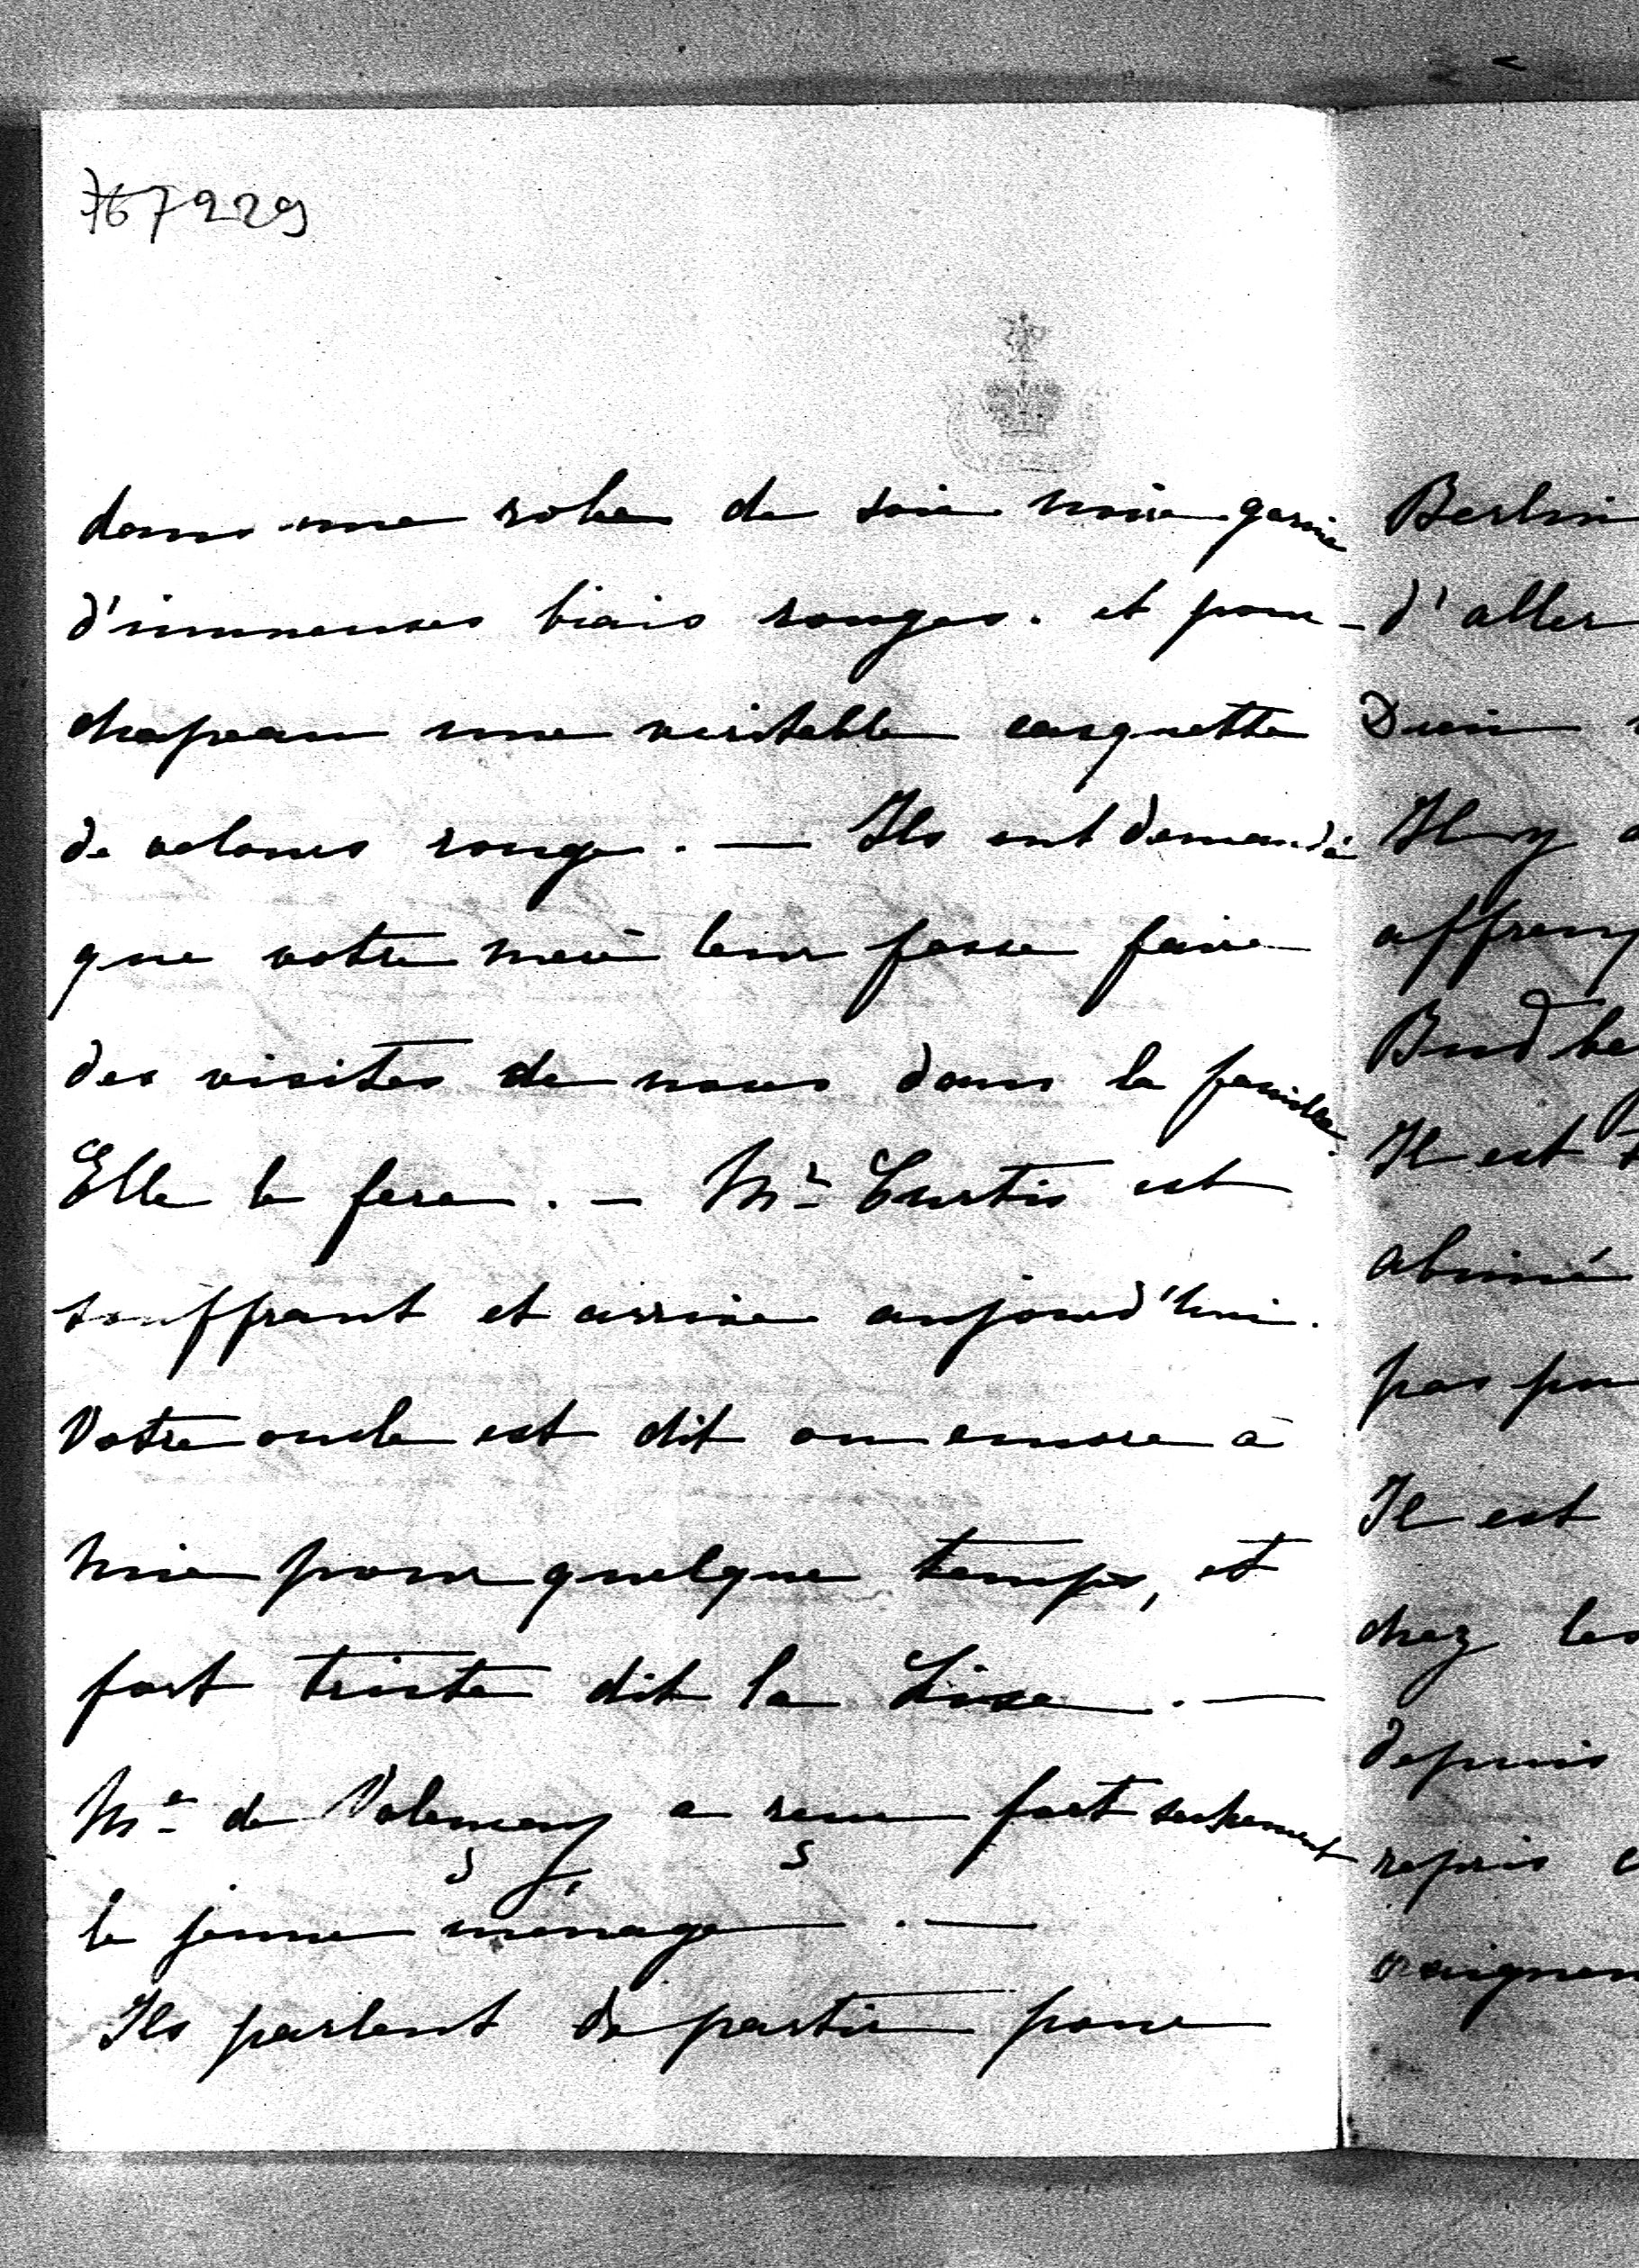 767229
dans une robe de soie noire garnie
d'immenses biais rouges. et pour
chapeau une veritable casquette
de velours rouge. — Ils ont demandé
que votre mere leur fasse faire
des visites de noces dans la famille.
Elle le fera. — Mr Curtis est
souffrant et arrive aujourd'hui.
Votre oncle est dit on encore à
Nice pour quelque temps, et
fort triste dit la Lise. —
Me de Valençay a reçu fort sechement
le jeune ménage. —
Ils parlent de partir pour
Berlin
d'aller
Il y
Budbe
Il est
abimé
pas pu
Il est
chez les
depuis
repris